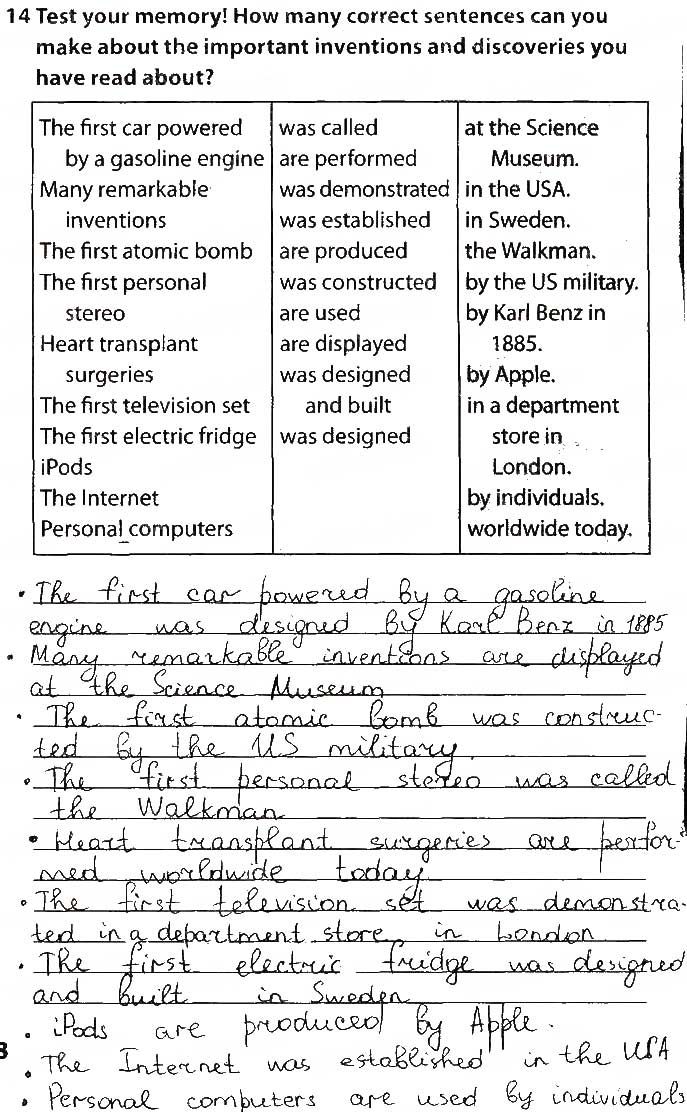 14 Test your memory! How many correct sentences can you
make about the important inventions and discoveries you
have read about?
The first car powered
by a gasoline engine
Many remarkable
inventions
The first atomic bomb
The first personal
stereo
Heart transplant
surgeries
The first television set
The first electric fridge
iPods
The Internet
Personal computers
was called
are performed
was demonstrated
was established
are produced
was constructed
are used
are displayed
was designed
and built
was designed
at the Science
Museum.
in the USA.
in Sweden.
the Walkman.
by the US military.
by Karl Benz in
1885.
by Apple.
in a department
store in
London.
by individuals.
worldwide today.
• The first car powered by a gasoline
engine was designed by Karl Benz in 1885
• Many remarkable inventions are displayed
at the Science Museum
• The first atomic bomb was construc-
ted by the US military.
• The first personal stereo was called
the Walkman
• Heart transplant surgeries are perfor-
med worldwide today
• The first television set was demonstra-
ted in a department store in London
• The first electric fridge was designed
and built in Sweden
• iPods are produced by Apple.
• The Internet was established in the USA
• Personal computers are used by individuals